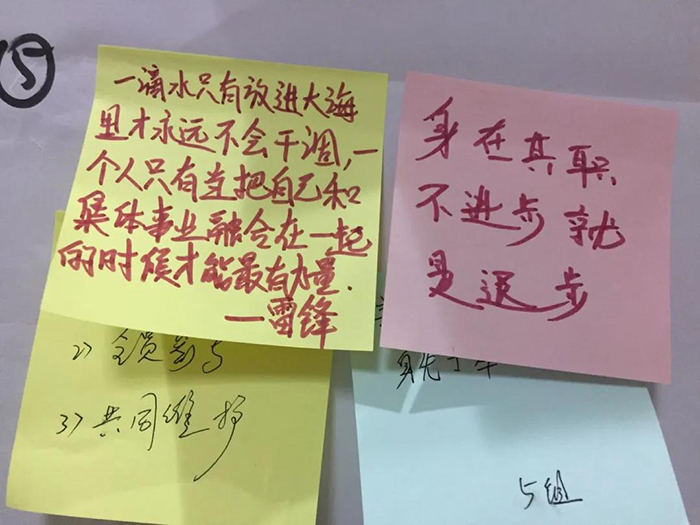 15
一滴水只有放进大海
里才永远不会干涸,一
个人只有当把自己和
集体事业融合在一起
的时候才能最有力量.
—雷锋
身在其职
不进步就
是退步
2) 全员参与
3) 共同维护
身先士卒
5组